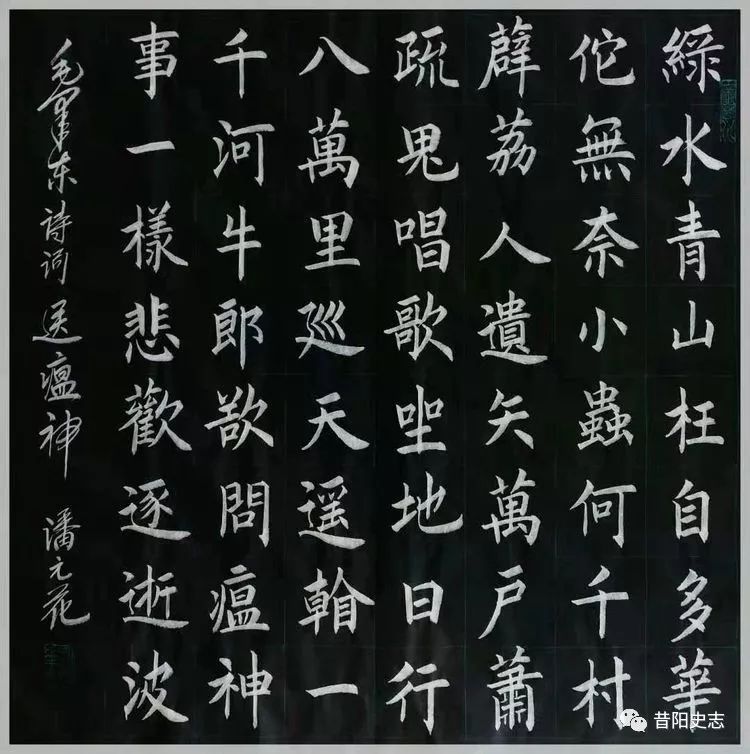 綠水青山枉自多華
佗無奈小蟲何千村
薜荔人遺矢萬戶蕭
疏鬼唱歌坐地日行
八萬里巡天遥一
千河牛郎欲問瘟神
事一樣悲歡逐逝波
毛泽东诗词送瘟神 潘元花
昔阳史志